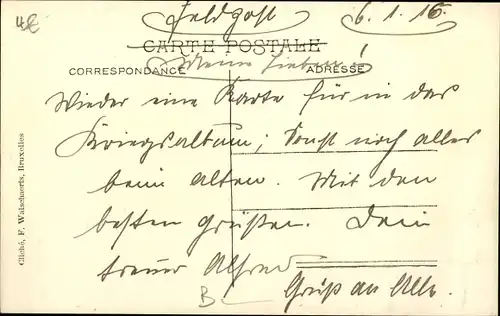 4€
Feldpost 6.1.16.
CARTE POSTALE
CORRESPONDANCE ADRESSE
Meine Lieben!
Wieder eine Karte für in das
Kriegsalbum; Sonst noch alles
beim alten. Mit den
besten Grüßen. Dein
treuer Alfred
Gruß an Alle.
B
Cliché, F. Walschaerts, Bruxelles